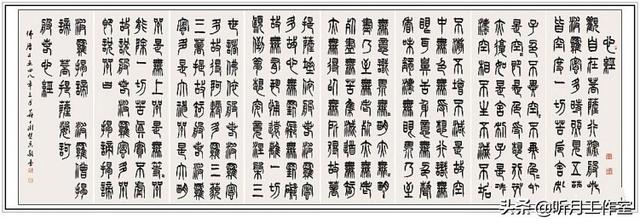 心經
觀自在菩薩行深般若
波羅蜜多時照見五蘊
皆空度一切苦厄舍利
子色不異空空不異色色
即是空空即是色受想行識
亦復如是舍利子是諸法
空相不生不滅不垢
不淨不增不減是故空
中無色無受想行識無
眼耳鼻舌身意無色聲
香味觸法無眼界乃至
無意識界無無明亦無
無明盡乃至無老死亦
無老死盡無苦集滅道
無智亦無得以無所得故
菩提薩埵依般若波羅蜜
多故心無罣礙無罣礙
故無有恐怖遠離顛倒
夢想究竟涅槃三
世諸佛依般若波羅蜜
多故得阿耨多羅三藐
三菩提故知般若波羅
蜜多是大神咒是大明
咒是無上咒是無等等
咒能除一切苦真實不虛
故說般若波羅蜜多咒
即說咒曰 揭諦揭諦
波羅揭諦 波羅僧揭
諦 菩提薩婆訶
般若心經
头条@听月工作室